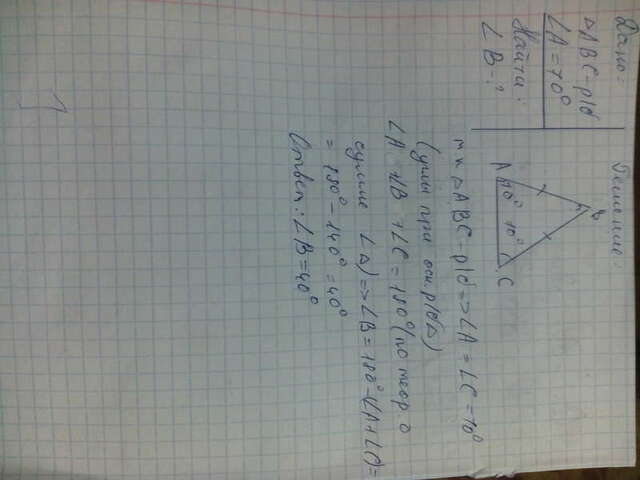 Дано:
△ABC - р/б
∠A = 70°
Найти:
∠B - ?
Решение:
B
A 70° 70° C
т.к. △ABC - р/б => ∠A = ∠C = 70°
(углы при осн. р/б △)
∠A + ∠B + ∠C = 180° (по теор. о
сумме ∠ △) => ∠B = 180° - (∠A + ∠C) =
= 180° - 140° = 40°
Ответ: ∠B = 40°